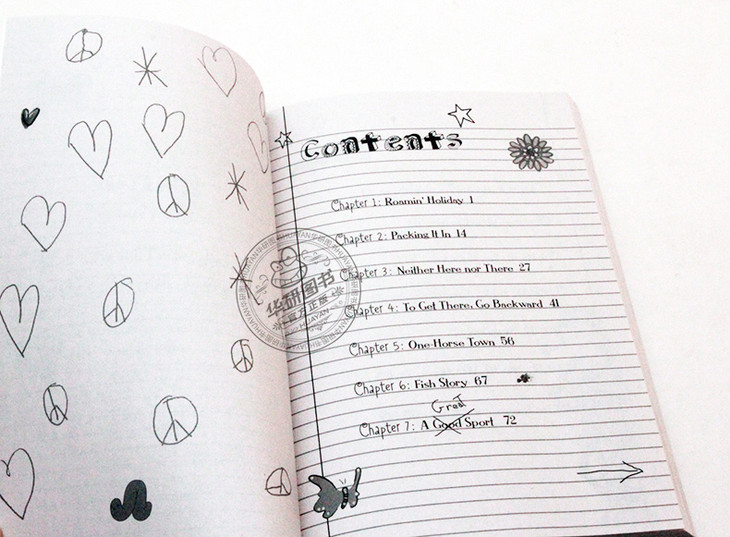 Contents
Chapter 1: Roamin' Holiday 1
Chapter 2: Packing It In 14
Chapter 3: Neither Here nor There 27
Chapter 4: To Get There, Go Backward 41
Chapter 5: One-Horse Town 56
Chapter 6: Fish Story 67
Great
Chapter 7: A Good Sport 72
华研图书
官方正版
HUAYAN